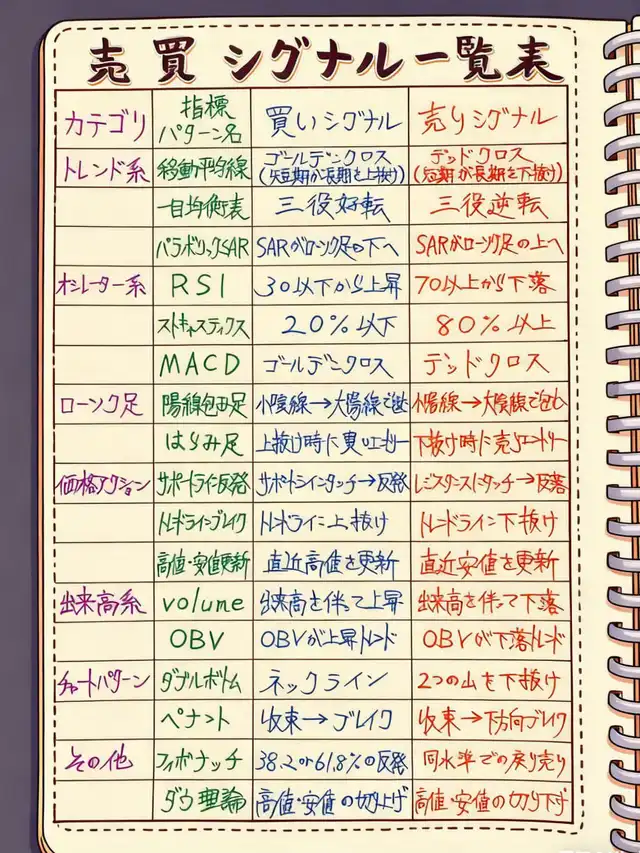 売買シグナル一覧表
カテゴリ 指標 パターン名 買いシグナル 売りシグナル
トレンド系 移動平均線 ゴールデンクロス (短期が長期を上抜け) デッドクロス (短期が長期を下抜け)
一目均衡表 三役好転 三役逆転
パラボリックSAR SARがローソク足の下へ SARがローソク足の上へ
オシレーター系 RSI 30以下から上昇 70以上から下落
ストキャスティクス 20%以下 80%以上
MACD ゴールデンクロス デッドクロス
ローソク足 陽線包み足 小陰線→大陽線で包む 小陽線→大陰線で包む
はらみ足 上抜け時に買いエントリー 下抜け時に売りエントリー
価格アクション サポートライン反発 サポートラインタッチ→反発 レジスタンスにタッチ→反落
トレンドラインブレイク トレンドライン上抜け トレンドライン下抜け
高値・安値更新 直近高値を更新 直近安値を更新
出来高系 volume 出来高を伴って上昇 出来高を伴って下落
OBV OBVが上昇トレンド OBVが下落トレンド
チャートパターン ダブルボトム ネックライン 2つの山を下抜け
ペナント 収束→ブレイク 収束→下方向ブレイク
その他 フィボナッチ 38.2or61.8%の反発 同水準での戻り売り
ダウ理論 高値・安値の切り上げ 高値・安値の切り下げ